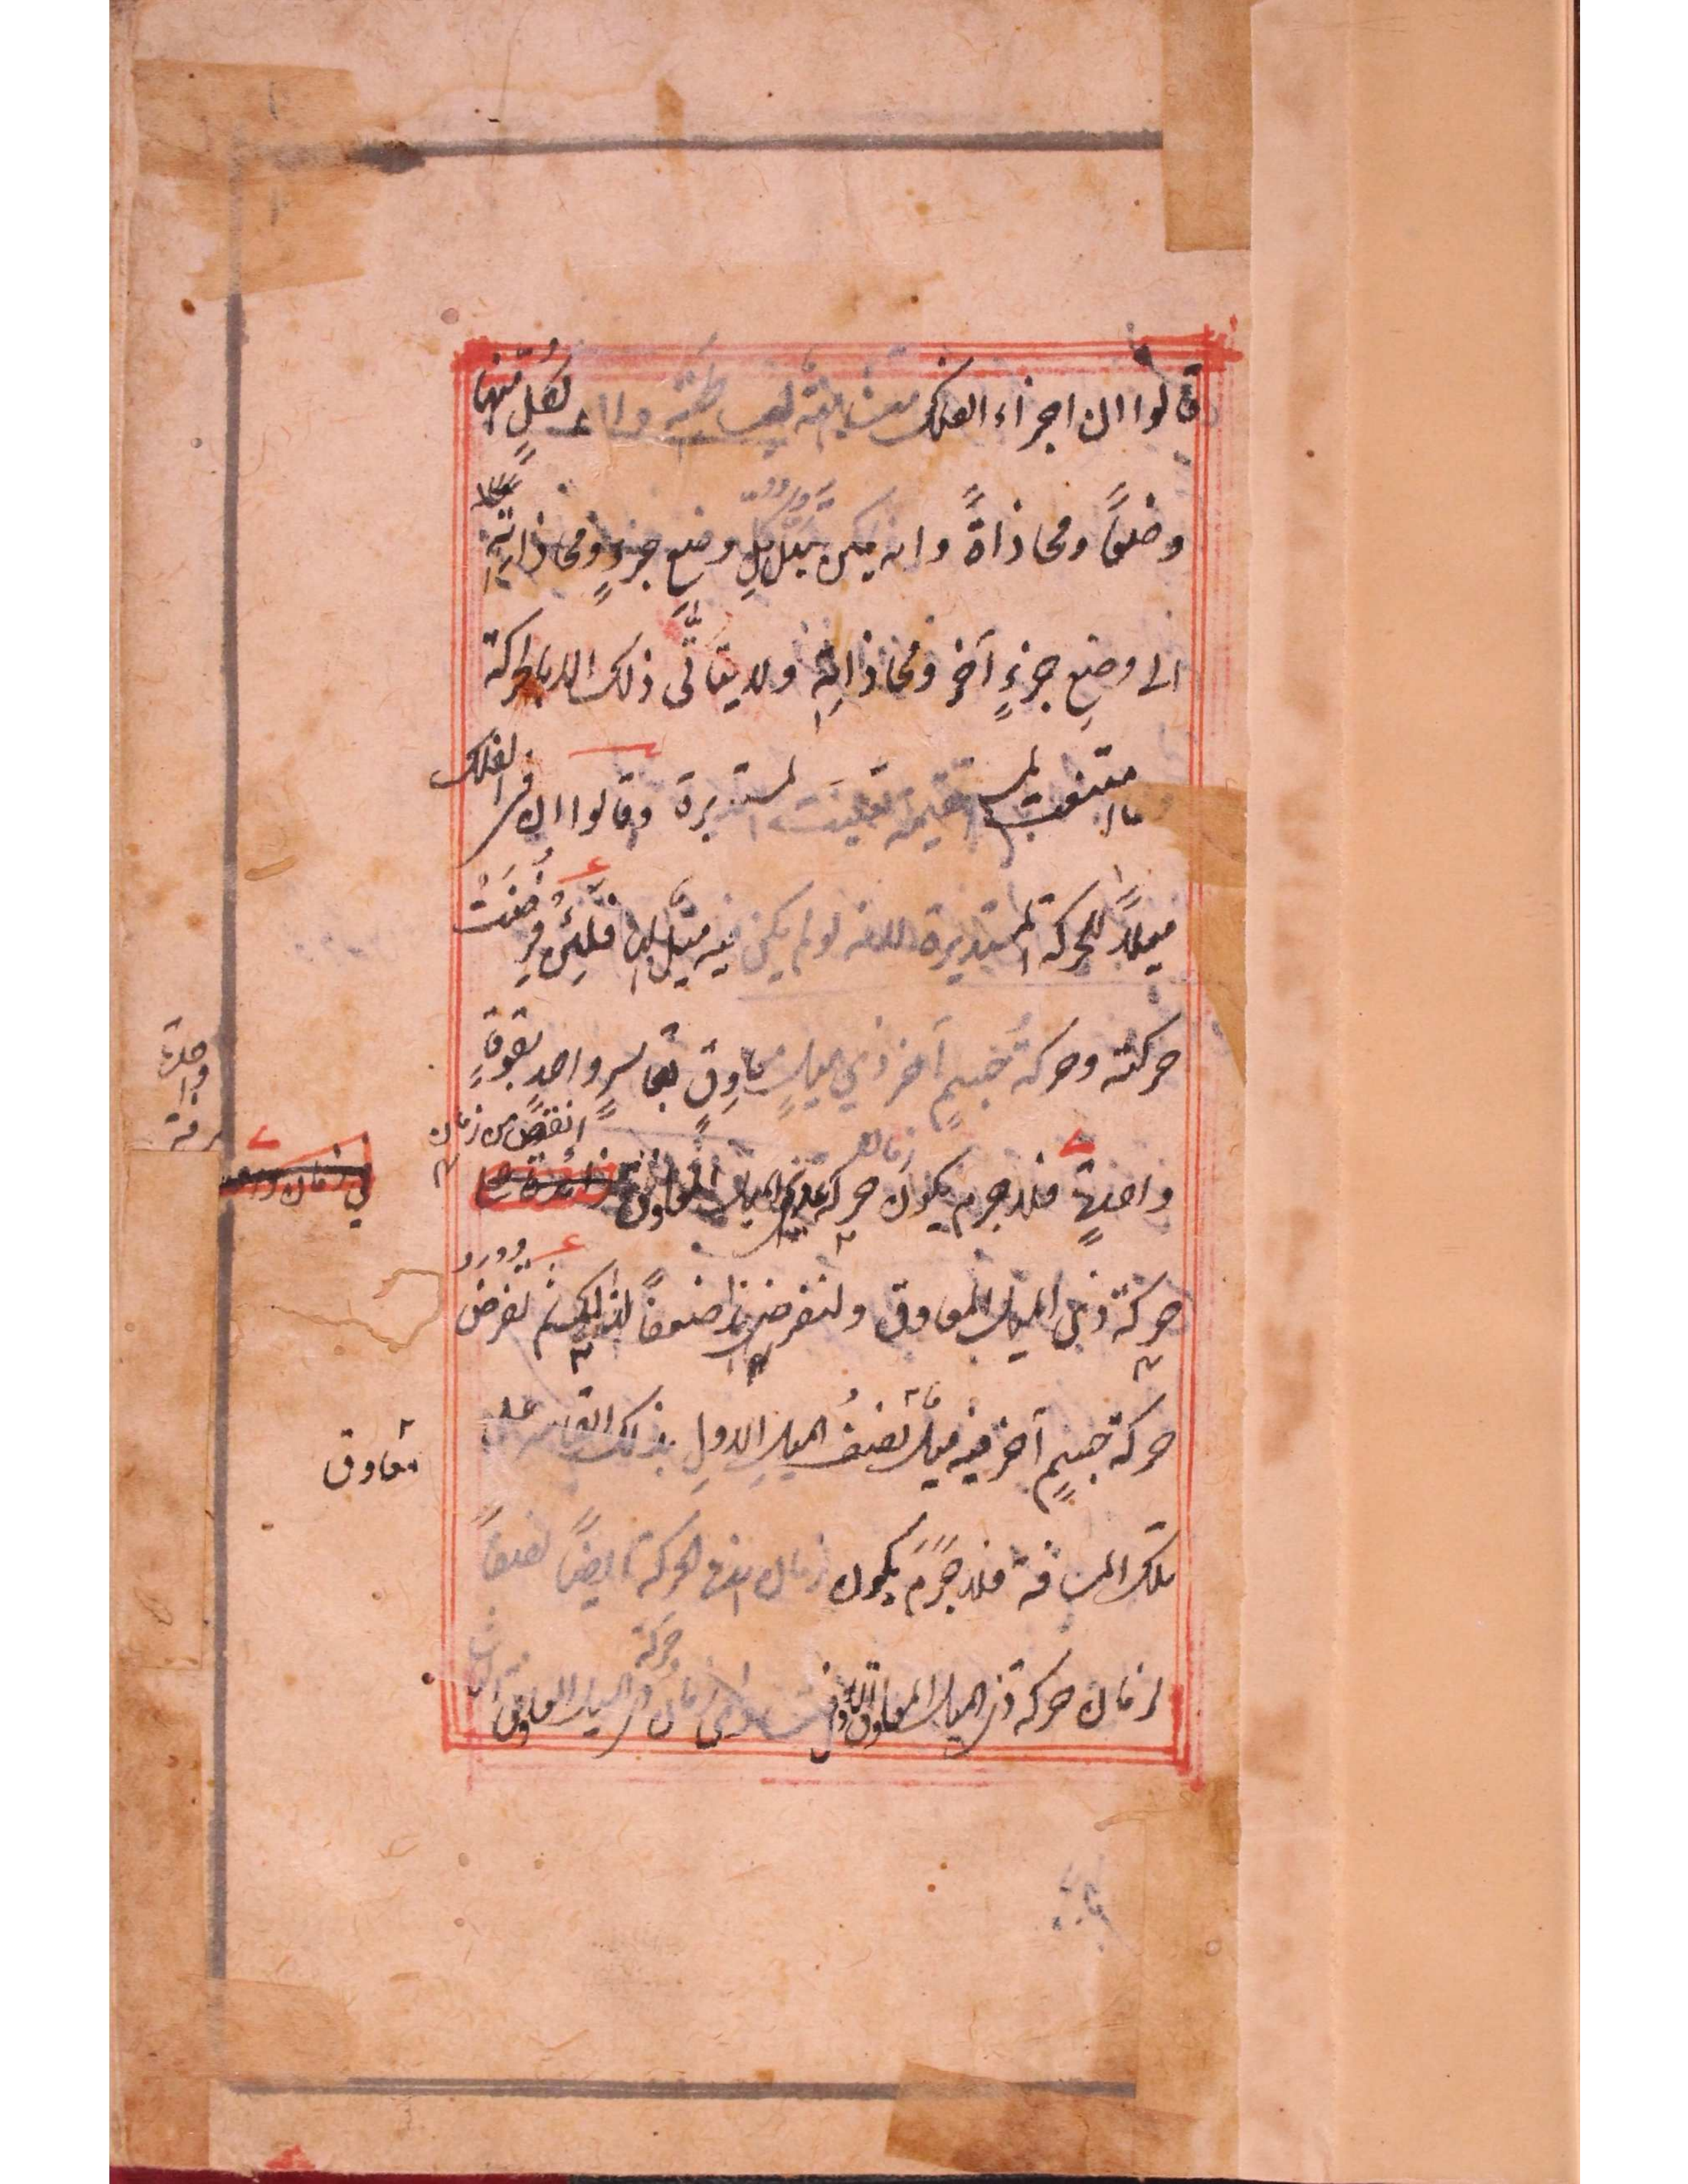 قالوا ان اجزاء الفلك متشابهة لبساطته وان لكلٍ منها
وضعًا ومحاذاةً وانه يمكن تبدّل وضع جزءٍ ومحاذاته
الى وضع جزءٍ آخر ومحاذاته ولا يتأتّى ذلك الا بالحركة
وما امتنعت المستقيمة تعينت المستديرة وقالوا ان في الفلك
ميلًا للحركة المستديرة لانه لو لم يكن فيه ميل فلئن فُرِضَت
حركته وحركة جسمٍ آخر ذي ميلٍ معاوِق بقاسرٍ واحدٍ بقوةٍ
واحدةٍ فلا جرم يكون زمان حركة عديم الميل المعاوق انقص من زمان
حركة ذي الميل المعاوق ولنفرضه نصفًا لذلك ثم نفرض
حركة جسمٍ آخر فيه ميل نصف الميل الاول بذلك القاسر على
تلك المسافة فلا جَرَمَ يكون زمان هذه الحركة ايضًا نصفًا
لزمان حركة ذي الميل المعاوق الاول فتساوى زمان حركة ذي الميل المعاوق
واحدة
معاوق